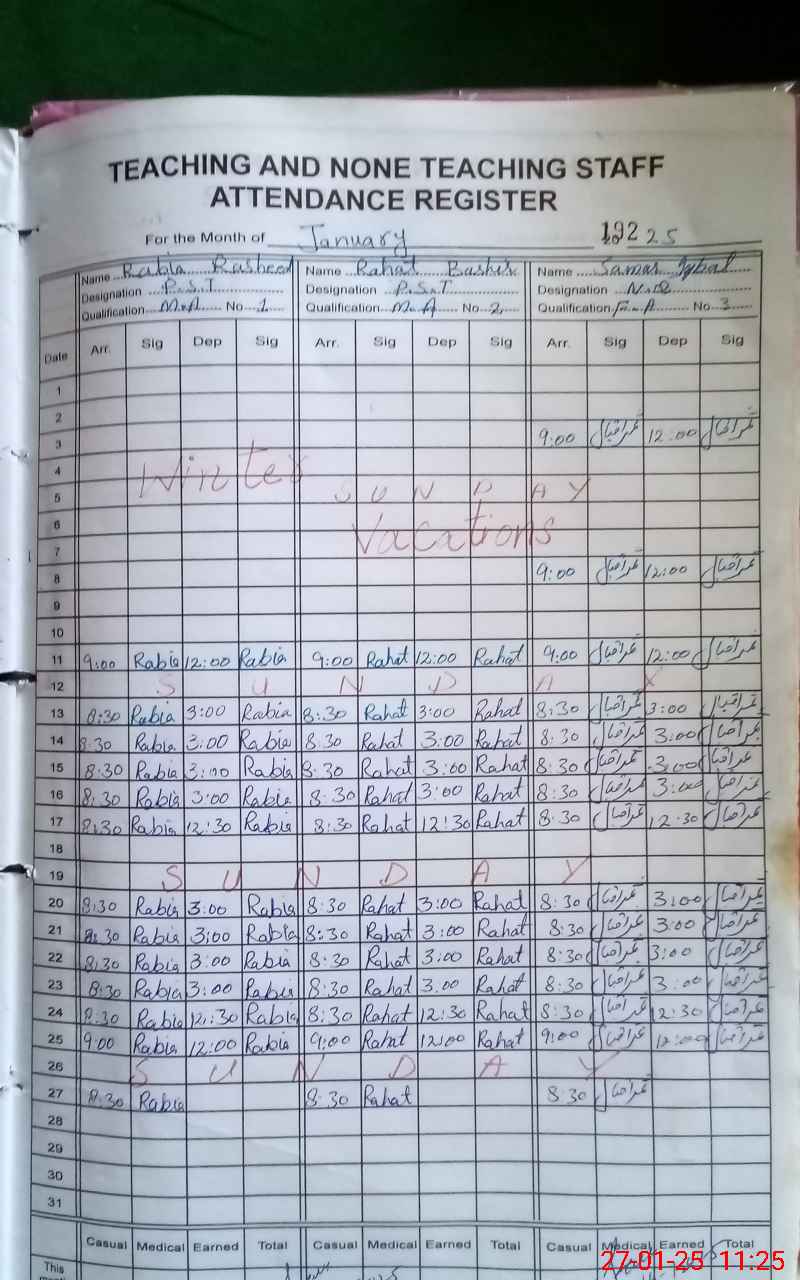 TEACHING AND NONE TEACHING STAFF
ATTENDANCE REGISTER
For the Month of January 19225
Name Rabia Rasheed Name Rahat Bashir Name Samar Iqbal
Designation P.S.T Designation P.S.T Designation N.Q
Qualification M.A No 1 Qualification M.A No 2 Qualification F.A No 3
Date Arr. Sig Dep Sig Arr. Sig Dep Sig Arr. Sig Dep Sig
1
2
3 9:00 12:00
4 Winter
5 SUNDAY
6
7 Vacations
8 9:00 12:00
9
10
11 9:00 Rabia 12:00 Rabia 9:00 Rahat 12:00 Rahat 9:00 12:00
12 SUNDAY
13 8:30 Rabia 3:00 Rabia 8:30 Rahat 3:00 Rahat 8:30 3:00
14 8:30 Rabia 3:00 Rabia 8:30 Rahat 3:00 Rahat 8:30 3:00
15 8:30 Rabia 3:00 Rabia 8:30 Rahat 3:00 Rahat 8:30 3:00
16 8:30 Rabia 3:00 Rabia 8:30 Rahat 3:00 Rahat 8:30 3:00
17 8:30 Rabia 12:30 Rabia 8:30 Rahat 12:30 Rahat 8:30 12:30
18
19 SUNDAY
20 8:30 Rabia 3:00 Rabia 8:30 Rahat 3:00 Rahat 8:30 3:00
21 8:30 Rabia 3:00 Rabia 8:30 Rahat 3:00 Rahat 8:30 3:00
22 8:30 Rabia 3:00 Rabia 8:30 Rahat 3:00 Rahat 8:30 3:00
23 8:30 Rabia 3:00 Rabia 8:30 Rahat 3.00 Rahat 8:30 3:00
24 8:30 Rabia 12:30 Rabia 8:30 Rahat 12:30 Rahat 8:30 12:30
25 9:00 Rabia 12:00 Rabia 9:00 Rahat 12:00 Rahat 9:00 12:00
26 SUNDAY
27 8:30 Rabia 8:30 Rahat 8:30
28
29
30
31
Casual Medical Earned Total Casual Medical Earned Total Casual Medical Earned Total
This
27-01-25 11:25